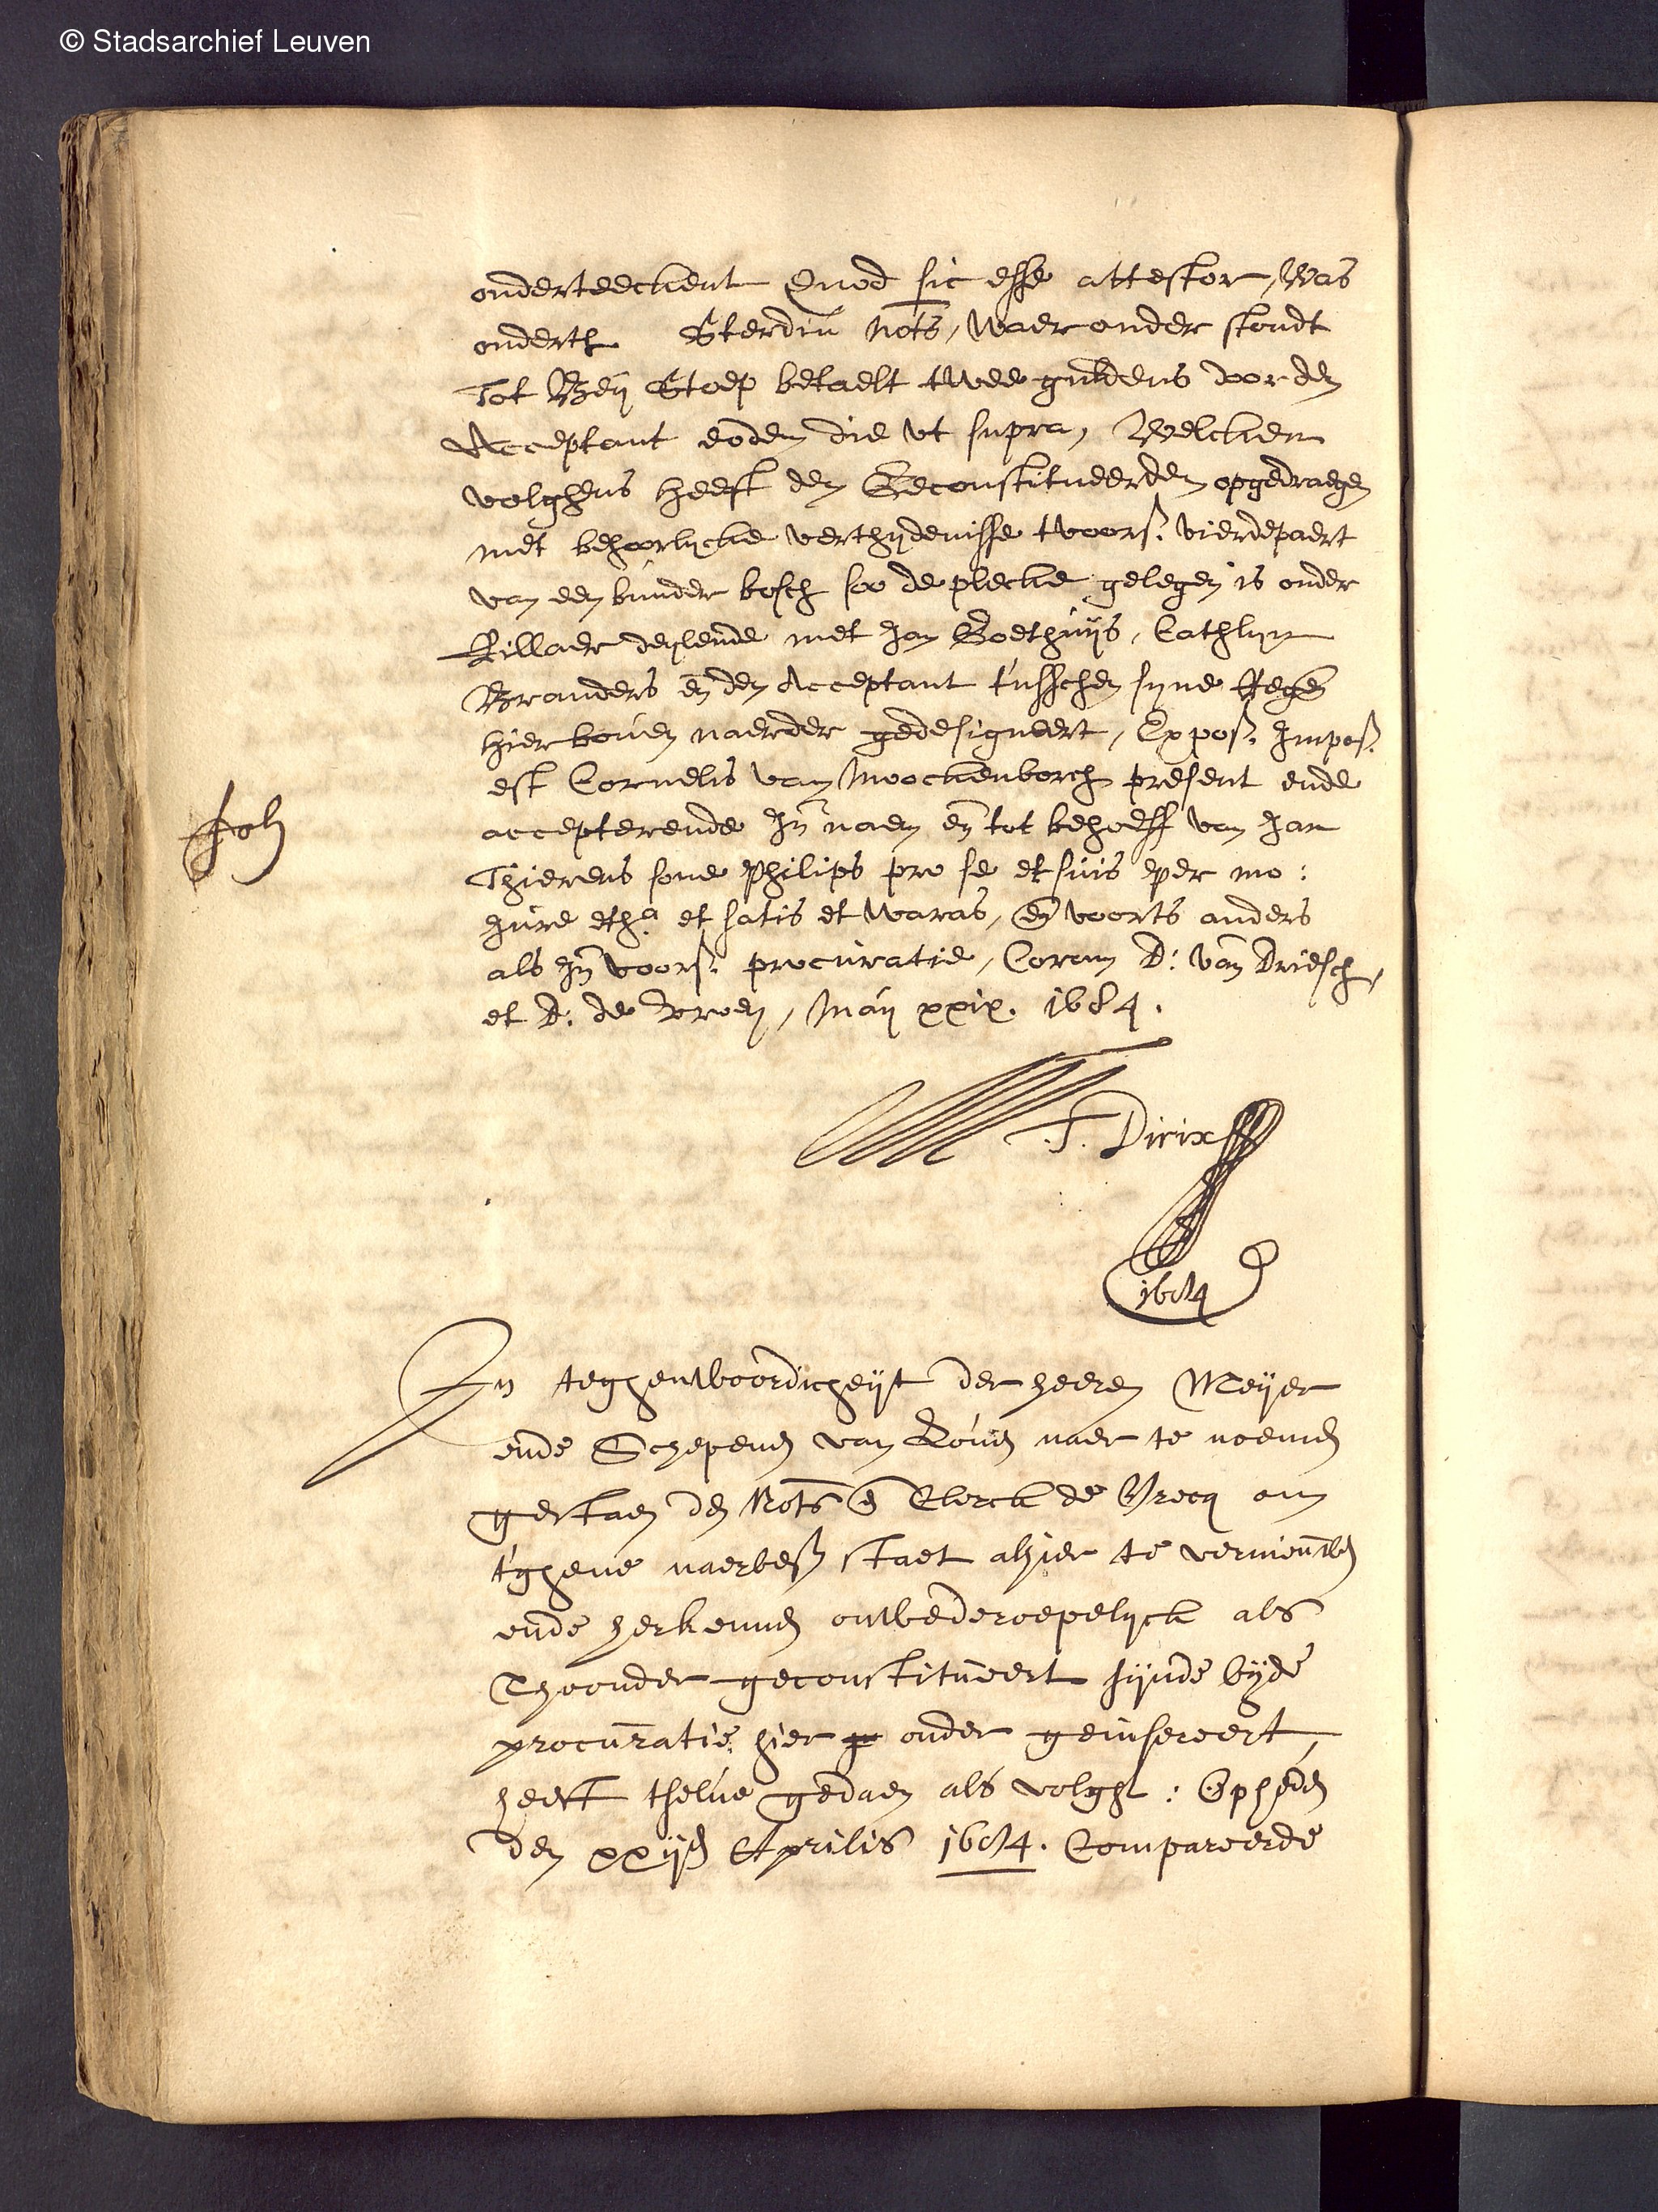 © Stadsarchief Leuven
onderteeckent Quod sic esse attestor, Was
onderth Sterdin nots, waer onder stondt
Tot Beij Stoep betaelt twee guldens door den
Acceptant eodem die vt supra, Welcken
volghens heeft den Geconstitueerden opgedraegen
met behoorlycke verthydenisse tvoors. vierdepaert
van een bunder bosch soo de plecke gelegen is onder
Rillaer deylende met Jan Goethuijs, Cathlyn
Branders en den Acceptant tusschen syne Regen
hier boven naerder gedesigneert, Expos. Impos.
est Cornelis van Moockenborch present ende
accepterende In naem en tot behoeff van Jan
Thierens sone Philips pro se et suis per mo:
Jure etha. et satis et waras, en voorts anders
als In voors. procuratie, Coram D: van Driesch,
et D. de Broey, Maij xxix. 1684.
solt
F. Dirix
1684
In teghenwoordicheijt der heeren Meijer
ende Schepenen van Loven naer te noemen
gestaen den Nots en Clerck de Vrecq om
t'ghene naerbes. staet alhier te vernieuwen
ende herkennen onwederoepelyck als
Thoonder geconstitueert sijnde bijde
procuratie hier onder geinsereert,
heeft tselve gedaen als volght: Opheden
den xxijen Aprilis 1684. Compareerde